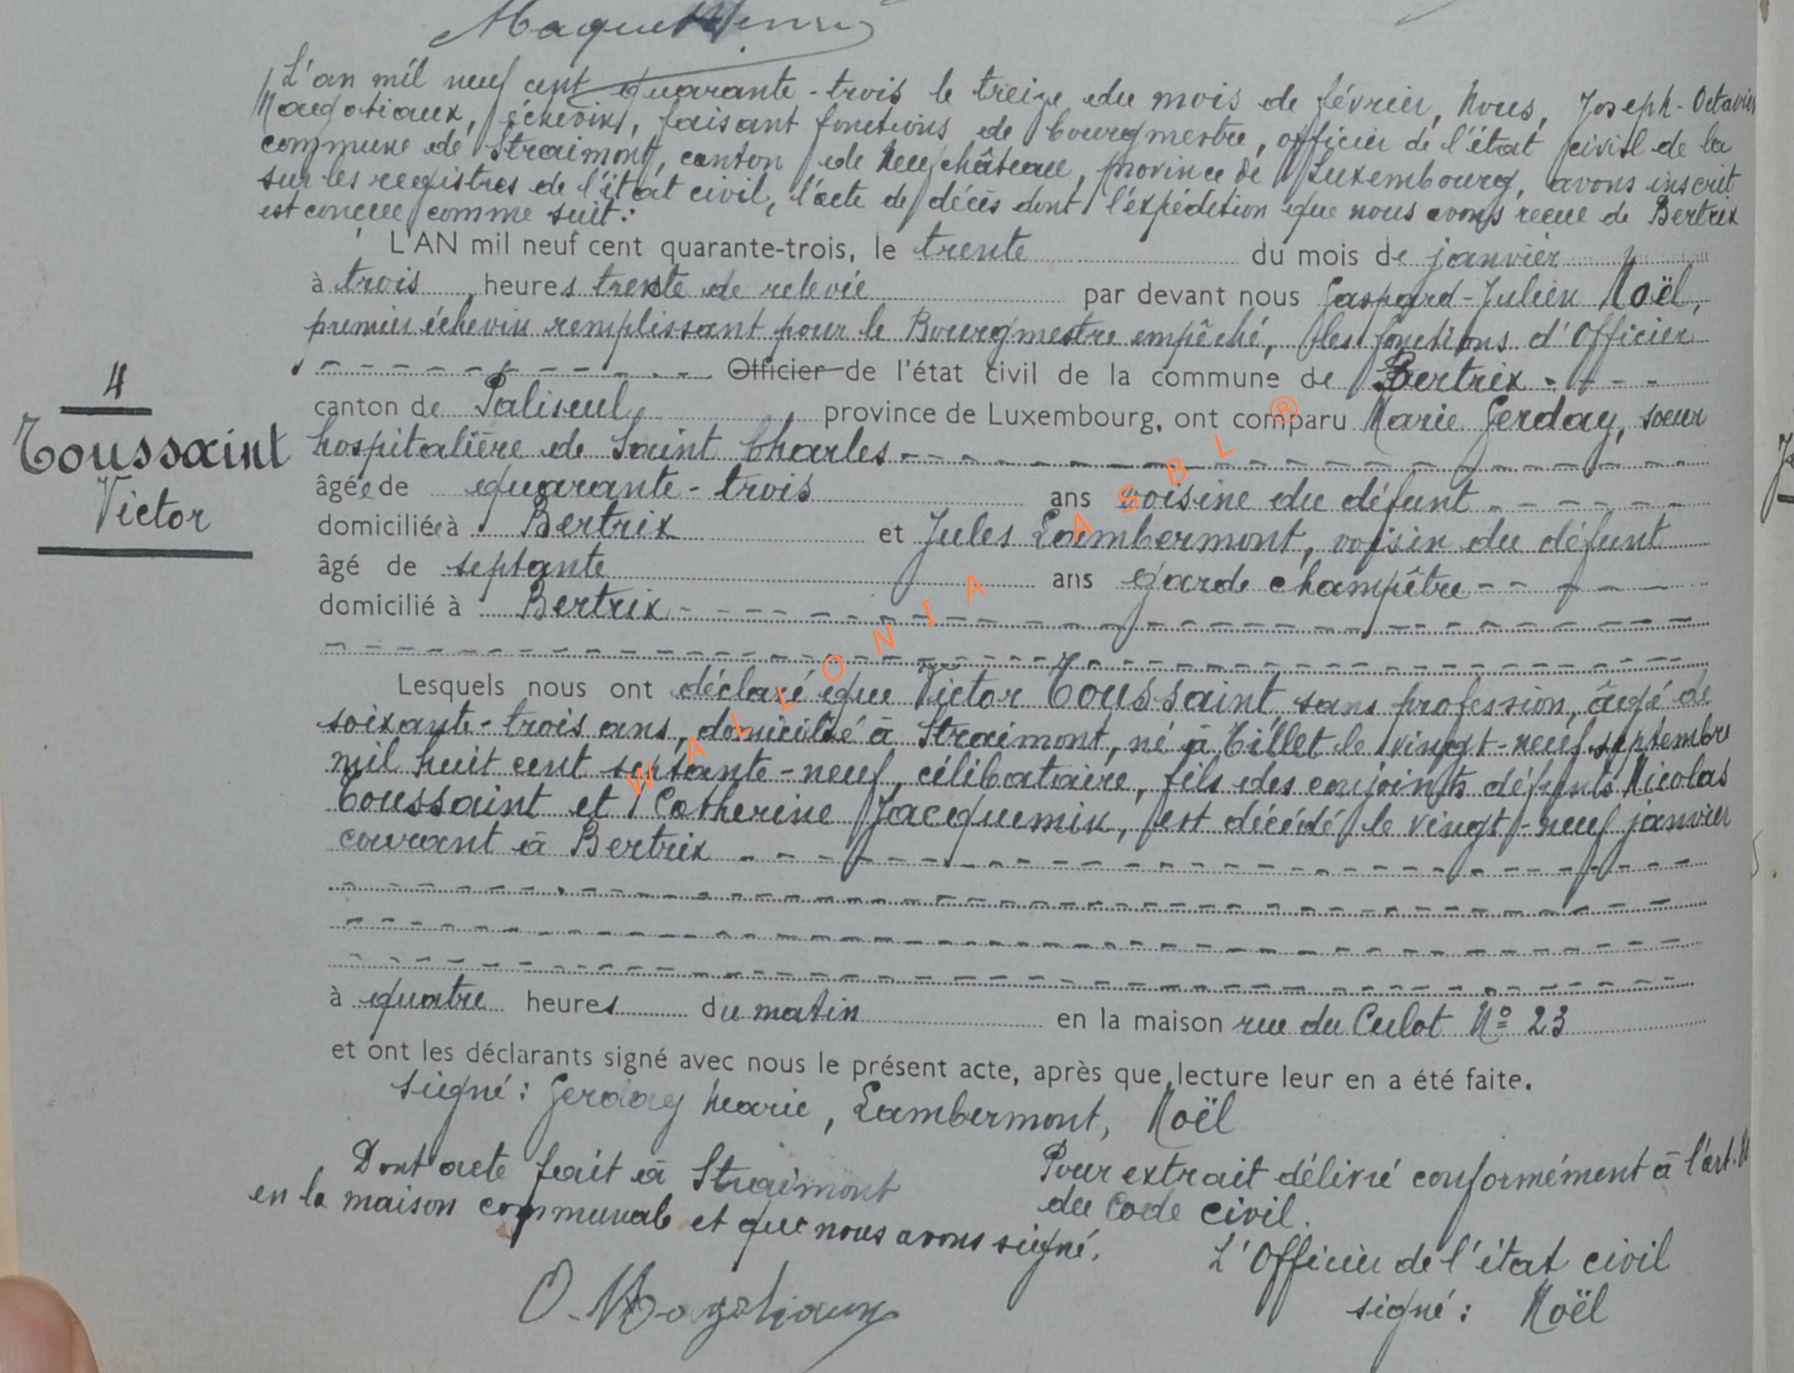 Maquet Henri
L'an mil neuf cent quarante-trois le treize du mois de février, Nous, Joseph-Octavien
Magotiaux, échevins, faisant fonctions de bourgmestre, officier de l'état civil de la
commune de Straimont, canton de Neufchâteau, province de Luxembourg, avons inscrit
sur les registres de l'état civil, l'acte de décès dont l'expédition que nous avons reçue de Bertrix
est conçue comme suit :
L'AN mil neuf cent quarante-trois, le trente du mois de janvier
à trois heures trente de relevée par devant nous Gaspard-Julien Noël,
premier échevin remplissant pour le Bourgmestre empêché, les fonctions d'Officier
Officier de l'état civil de la commune de Bertrix
canton de Paliseul province de Luxembourg, ont comparu Marie Gerday, sœur
hospitalière de Saint Charles
4
Toussaint
Victor
âgée de quarante-trois ans voisine du défunt
domiciliée à Bertrix et Jules Lambermont, voisin du défunt
âgé de septante ans garde champêtre
domicilié à Bertrix
Lesquels nous ont déclaré que Victor Toussaint sans profession, âgé de
soixante-trois ans, domicilié à Straimont, né à Tillet le vingt-neuf septembre
mil huit cent septante-neuf, célibataire, fils des conjoints défunts Nicolas
Toussaint et Catherine Jacquemin, est décédé le vingt-neuf janvier
courant à Bertrix
à quatre heures du matin en la maison rue du Culot N° 23
et ont les déclarants signé avec nous le présent acte, après que lecture leur en a été faite.
signé : Gerday Marie, Lambermont, Noël
Dont acte fait à Straimont
en la maison communale et que nous avons signé.
O. Magotiaux
Pour extrait délivré conformément à l'art.
du Code civil.
L'Officier de l'état civil
signé : Noël
WALLONIA ASBL ®